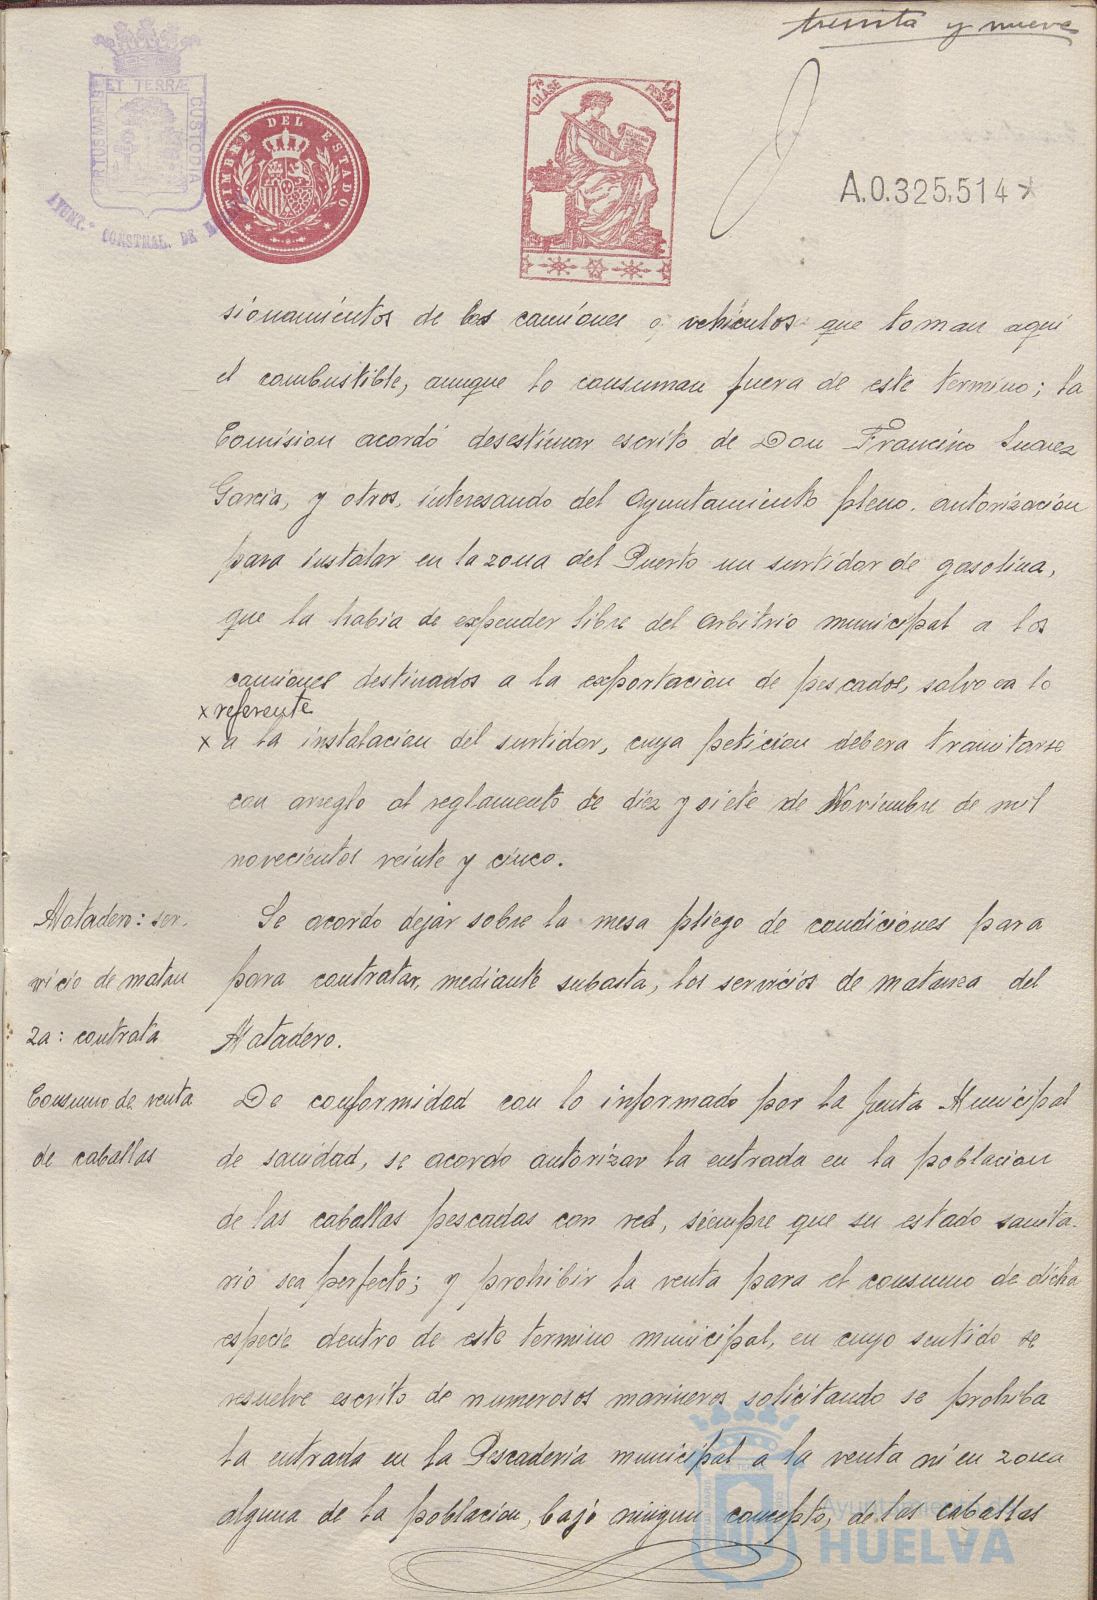 treinta y nueve
PORTUS MARIS ET TERRÆ CUSTODIA
AYUNT.º CONSTNAL. DE
TIMBRE DEL ESTADO
7ª CLASE
PESETAS
A.0.325,514*
sionamientos de los camiones o vehículos que toman aqui
el combustible, aunque lo consuman fuera de este termino; la
Comision acordó desestimar escrito de Don Francisco Suarez
Garcia, y otros, interesando del Ayuntamiento pleno, autorización
para instalar en la zona del Puerto un surtidor de gasolina,
que la habia de expender libre del arbitrio municipal a los
camiones destinados a la exportacion de pescados, salvo en lo
x referente
x a la instalacion del surtidor, cuya peticion debera tramitarse
con arreglo al reglamento de diez y siete de Noviembre de mil
novecientos veinte y cinco.
Matadero: ser-
vicio de matan
za: contrata
Se acordo dejar sobre la mesa pliego de condiciones para
para contratar, mediante subasta, los servicios de matanza del
Matadero.
Consumo de venta
de caballas
De conformidad con lo informado por la Junta Municipal
de sanidad, se acordo autorizar la entrada en la poblacion
de las caballas pescadas con red, siempre que su estado sanita-
rio sea perfecto; y prohibir la venta para el consumo de dicha
especie dentro de este termino municipal, en cuyo sentido se
resuelve escrito de numerosos marineros solicitando se prohiba
la entrada en la Pescaderia municipal a la venta ni en zona
alguna de la poblacion, bajo ningun concepto, de las caballas
Ayuntamiento de
HUELVA